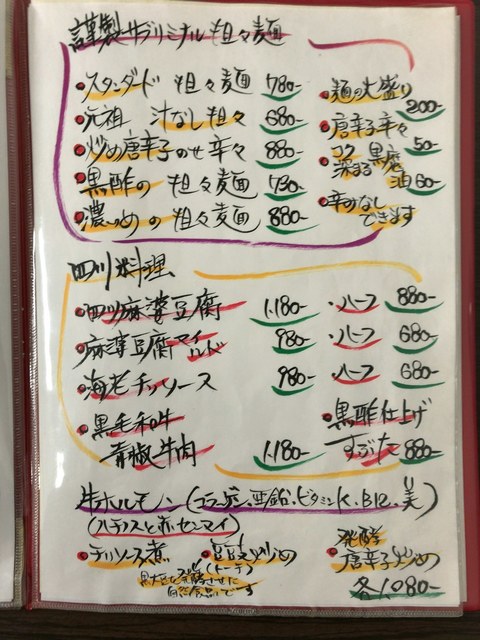 謹製サブリミナル担々麺
スタンダード 担々麺 780-
元祖 汁なし担々 680-
炒め唐辛子のせ辛々 880-
黒酢の 担々麺 730-
濃いめの 担々麺 880-
麺の大盛り
200-
唐辛子辛々
50-
コク
深まる黒麻
油60-
辛みなし
できます
四川料理
四川麻婆豆腐 1.180- ・ハーフ 880-
麻婆豆腐マイルルド 980- ・ハーフ 680-
海老チリソース 980- ・ハーフ 680-
黒毛和牛
青椒牛肉 1.180-
黒酢仕上げ
すぶた 880-
牛ホルモン(コラーゲン、亜鉛、ビタミンK、B12、美)
(ハチノスと赤センマイ)
チリソース煮
豆豉炒め
(トーチ)
黒大豆を発酵させた
自然食品です
発酵
唐辛子炒め
各1,080-